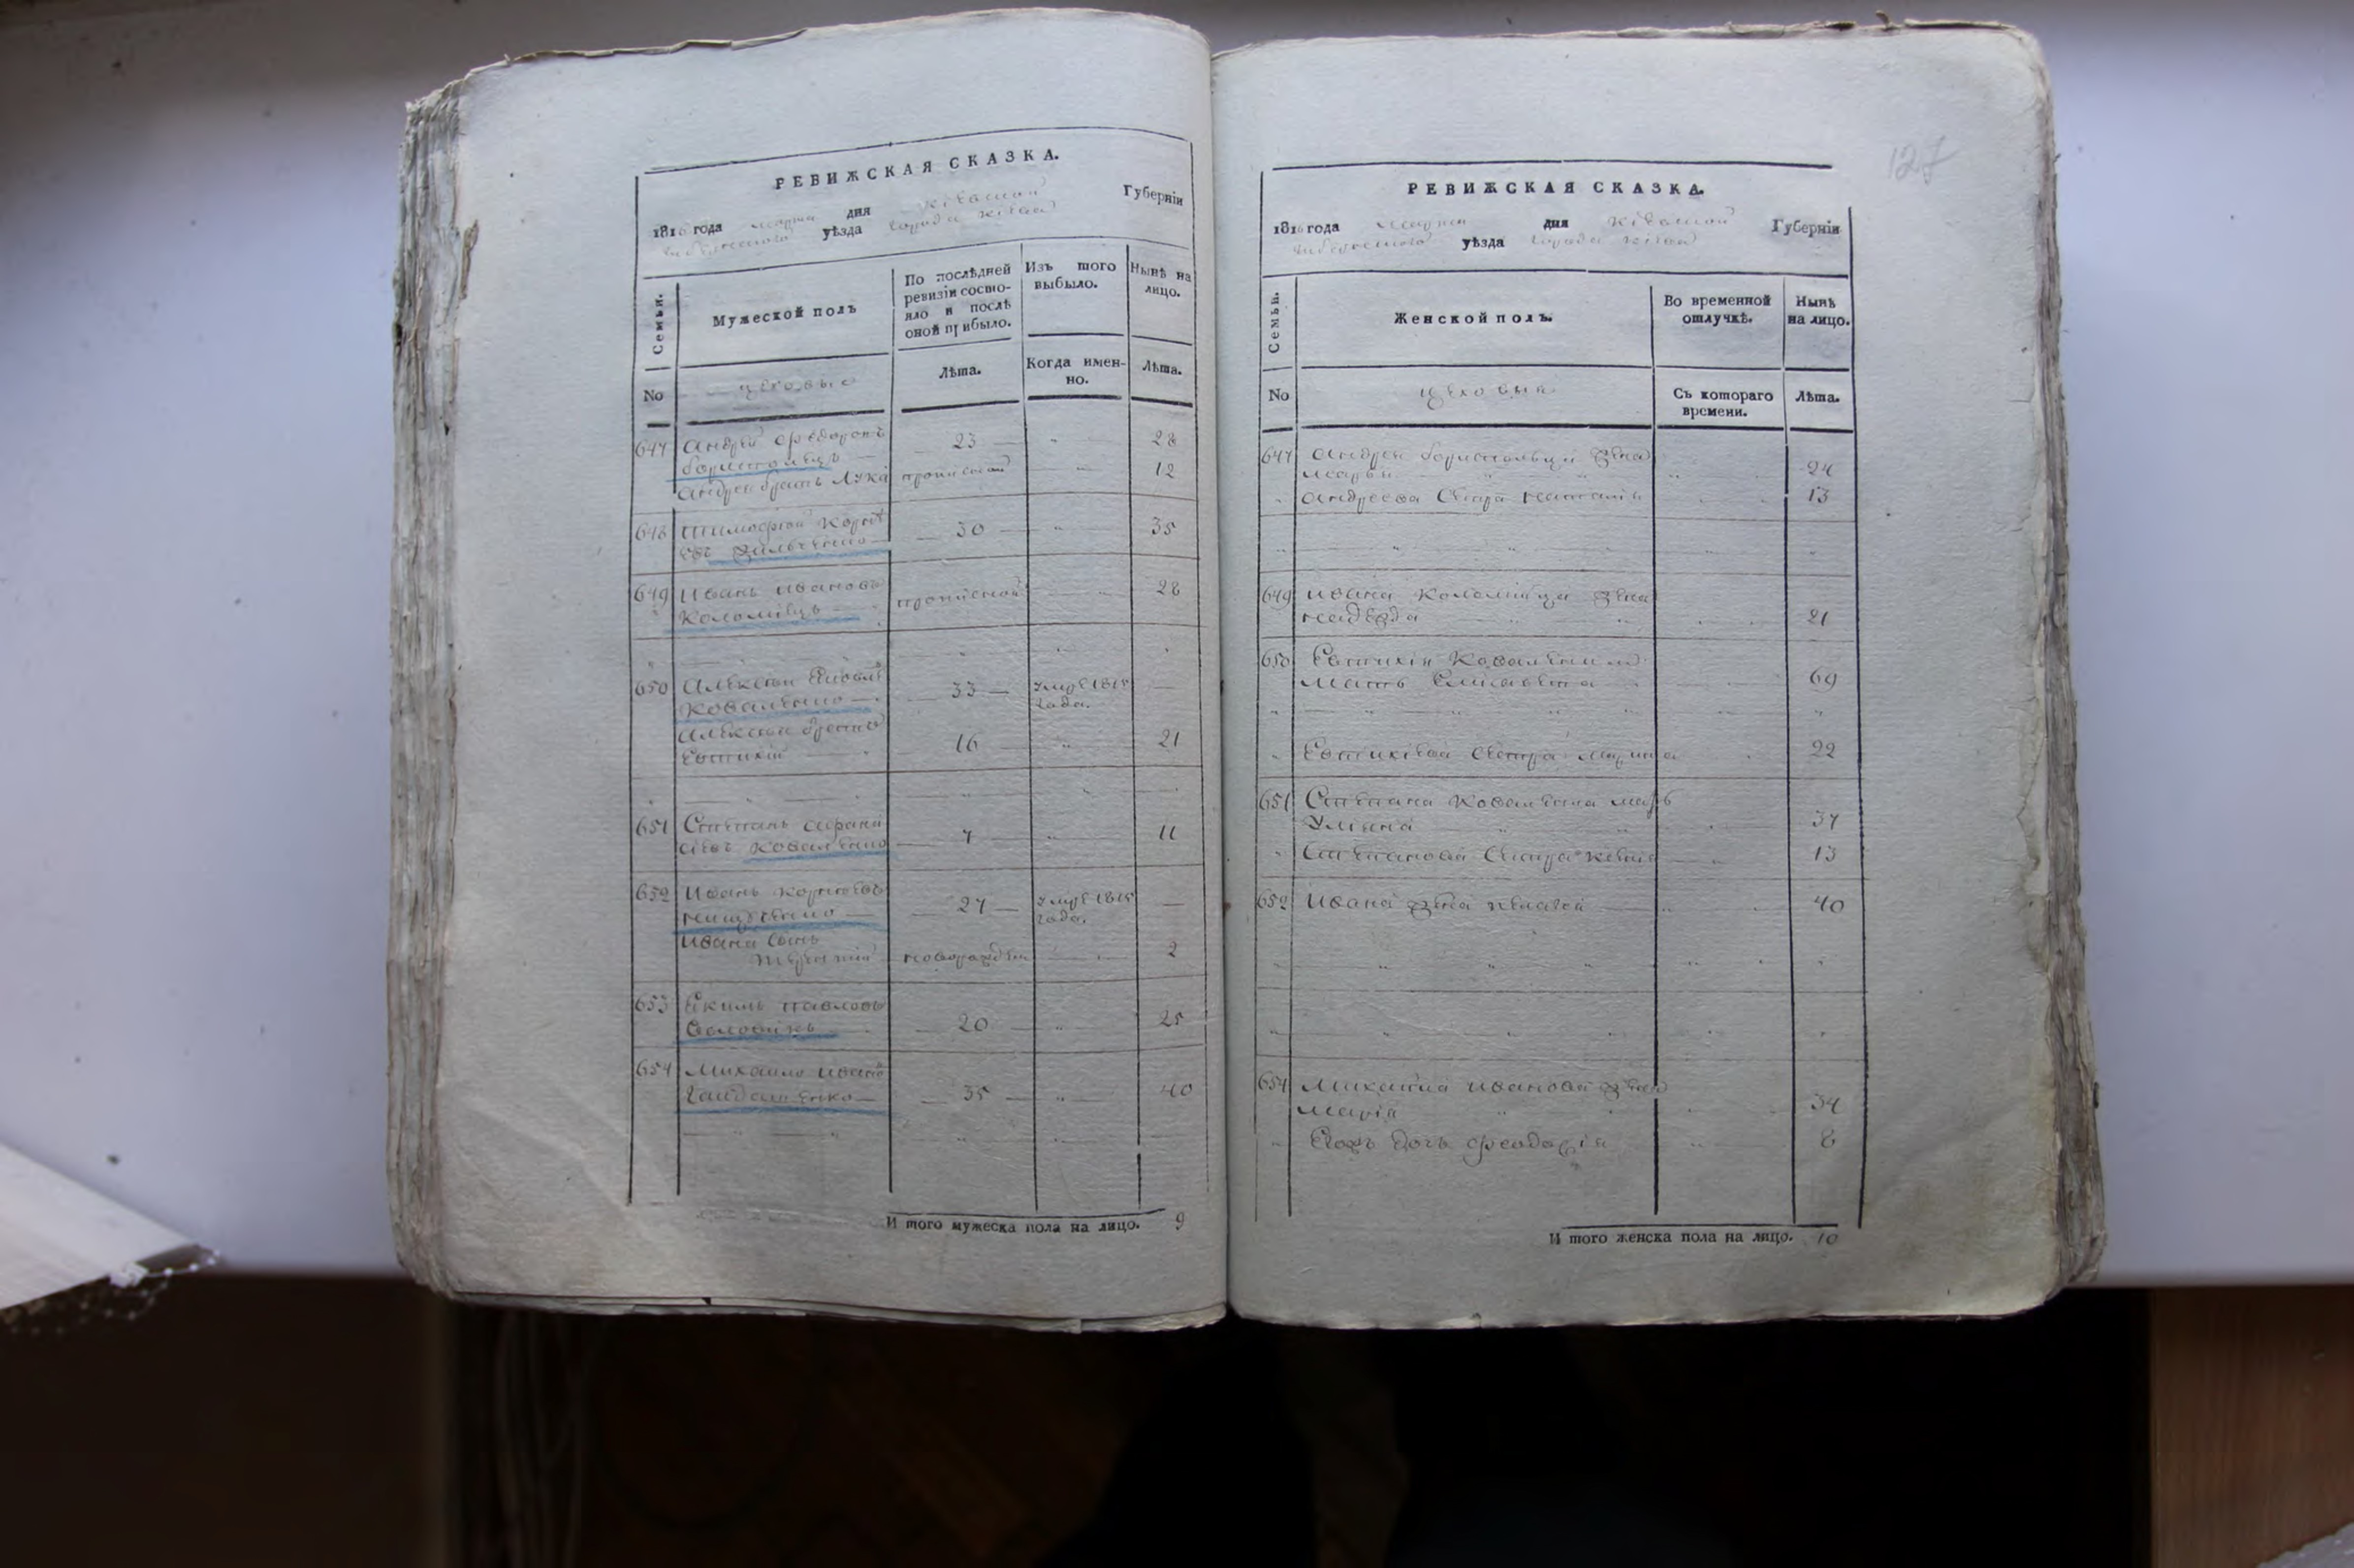 РЕВИЖСКАЯ СКАЗКА.
1816 года марта дня Кіевской Губерніи
уѣзда города Кіева
Семьи.
Мужеской полъ
По послѣдней
ревизіи состо-
яло и послѣ
оной прибыло.
Изъ того
выбыло.
Нынѣ на
лицо.
No
цеховые
Лѣта.
Когда имен-
но.
Лѣта.
647 Андрей Федоровъ 23 28
Борисполецъ
Андрея братъ Лука прописной 12
648 Тимофей 30 35
649 Иванъ Ивановъ прописной 28
Коломіецъ
650 Алексѣй 33 умре 1815
Коваленко года.
Алексѣя братъ 16 21
Евтихій
651 Степанъ Афана 7 11
сіевъ Коваленко
652 Иванъ Корнѣевъ 27 умре 1815
года.
Ивана сынъ
новорожден 2
653 Екимъ Павловъ 20 25
654 Михайло Ивано 35 40
Гайдашенко
И того мужеска пола на лицо. 9
127
РЕВИЖСКАЯ СКАЗКА.
1816 года марта дня Кіевской Губерніи
уѣзда города Кіева
Семьи.
Женской полъ.
Во временной
отлучкѣ.
Нынѣ
на лицо.
No
цеховыя
Съ котораго
времени.
Лѣта.
647 Андрея Бориспольца жена
Марья 24
Андреева сестра Наталія 13
649 Ивана Коломійца жена
Надежда 21
650 Евтихія Коваленка
мать Елисавета 69
Евтихіева сестра Марина 22
651 Степана Коваленка мать
Уляна 37
Степанова сестра 13
652 Ивана жена Пелагея 40
654 Михайла Иванова жена
Марія 34
Ихъ дочь Феодосія 8
И того женска пола на лицо. 10